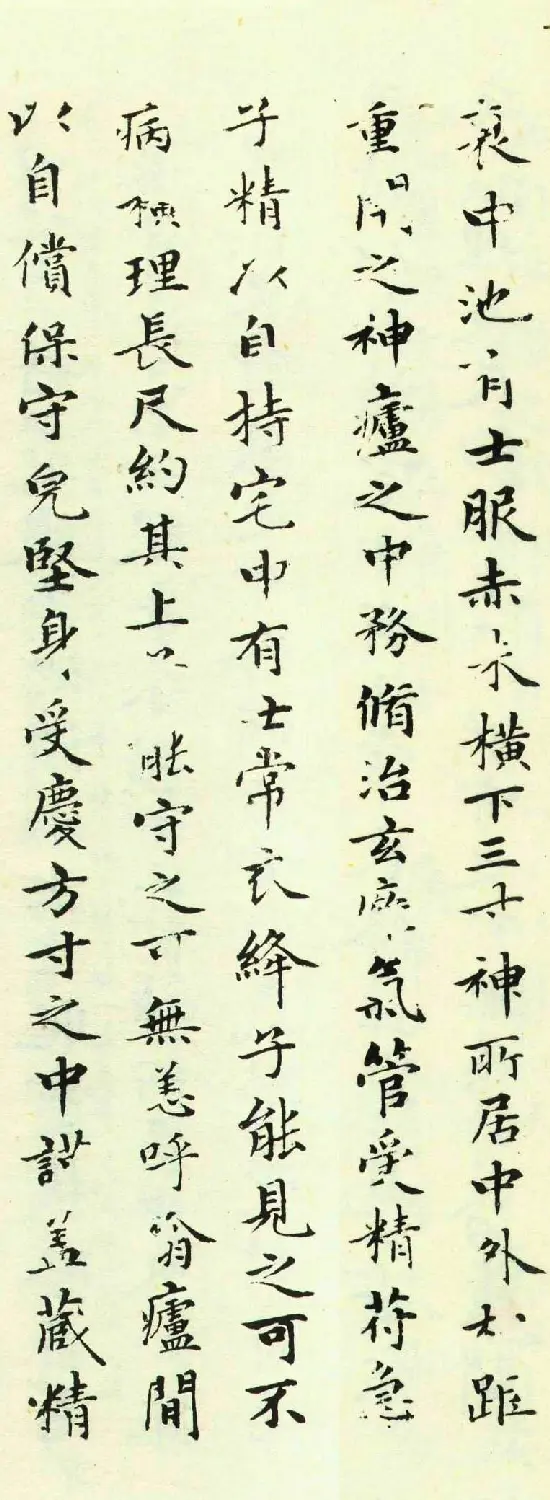 裹中池有士服赤朱橫下三寸神所居中外相距
重閉之神廬之中務脩治玄膺氣管受精符急
子精以自持宅中有士常衣絳子能見之可不
病橫理長尺約其上 能守之可無恙呼翕廬間
以自償保守皃堅身受慶方寸之中謹盖藏精